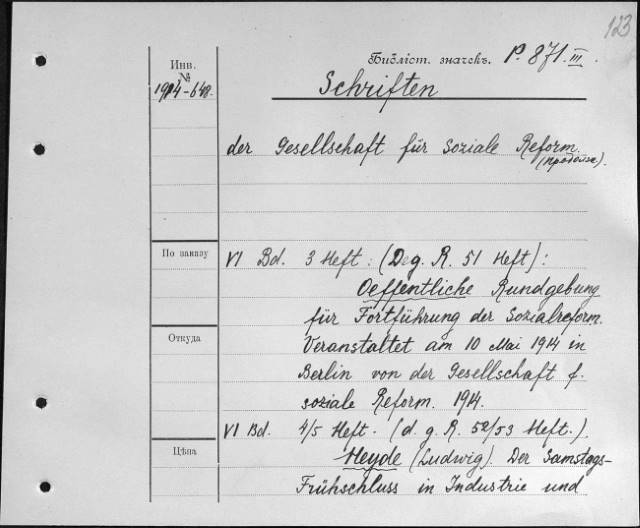 123
Инв.
№
1914-648.
Библіст. значекъ. P. 871 III.
Schriften
der Gesellschaft für soziale Reform.
(продолж).
По заказу
VI Bd. 3 Heft: (Deg. R. 51 Heft):
Oeffentliche Kundgebung
für Fortführung der Sozialreform.
Откуда
Veranstaltet am 10 Mai 1914 in
Berlin von der Gesellschaft f.
soziale Reform. 1914.
VI Bd. 4/5 Heft. (d. g. R. 52/53 Heft.).
Цѣна
Heyde (Ludwig). Der Samstags-
Frühschluss in Industrie und